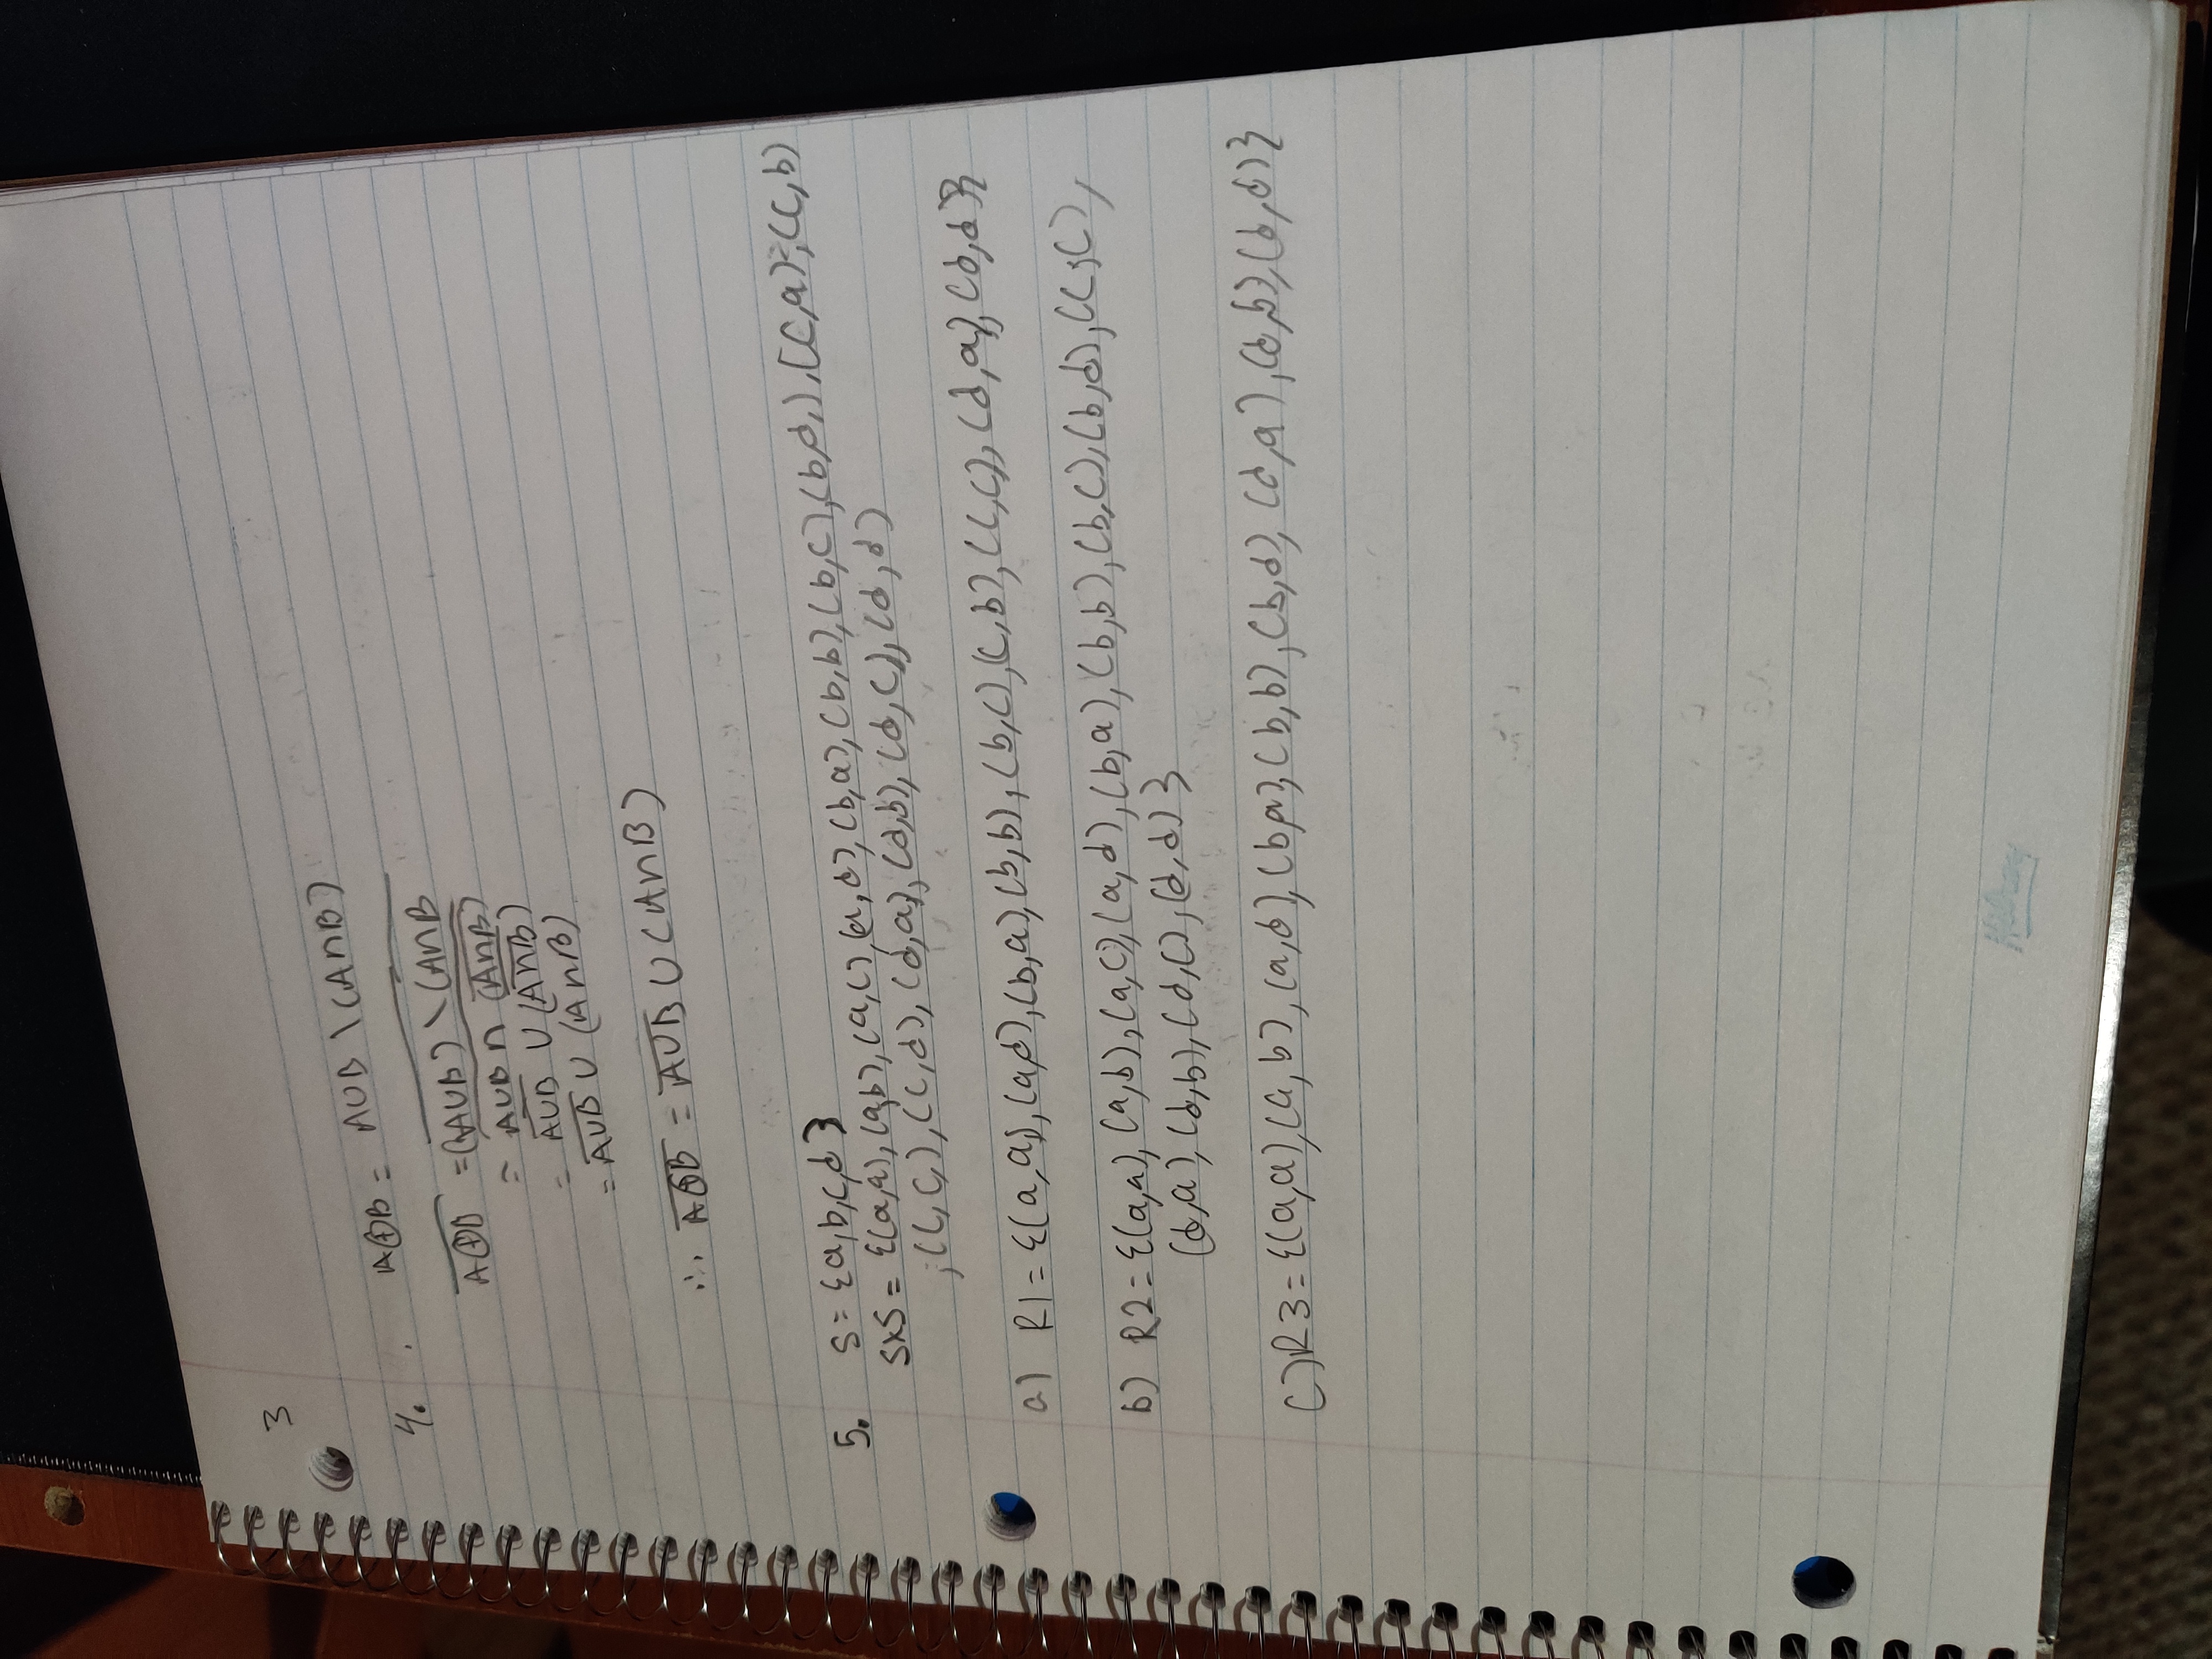 3
4. . A⊕B = A∪B \ (A∩B)
A̅⊕̅B̅ = (̅A̅∪̅B̅)̅ ̅\̅ ̅(̅A̅∩̅B̅
= A̅∪̅B̅ ̅∩̅ ̅(̅A̅∩̅B̅)̅
= A̅∪̅B̅ ∪ (A̅∩̅B̅)
= A̅∪̅B̅ ∪ (A∩B)
∴ A̅⊕̅B̅ = A̅∪̅B̅ ∪ (A∩B)
5. S = {a,b,c,d}
S×S = {(a,a),(a,b),(a,c),(a,d),(b,a),(b,b),(b,c),(b,d,),(c,a),(c,b)
,(c,c,),(c,d),(d,a),(d,b),(d,c),(d,d)
a) R1 = {(a,a),(a,d),(b,a),(b,b),(b,c),(c,b),(c,c),(d,a),(d,d)}
b) R2 = {(a,a),(a,b),(a,c),(a,d),(b,a),(b,b),(b,c),(b,d),(c,c),
(d,a),(d,b),(d,c),(d,d)}
c) R3 = {(a,a),(a,b),(a,d),(b,a),(b,b),(b,d),(d,a),(d,b),(d,d)}
Hilroy